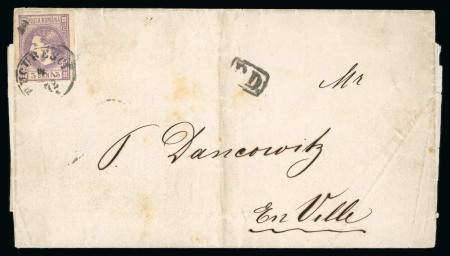 POSTA ROMANA
BUCURESCI
P.D.
Mr
P. Dancowitz
En Ville